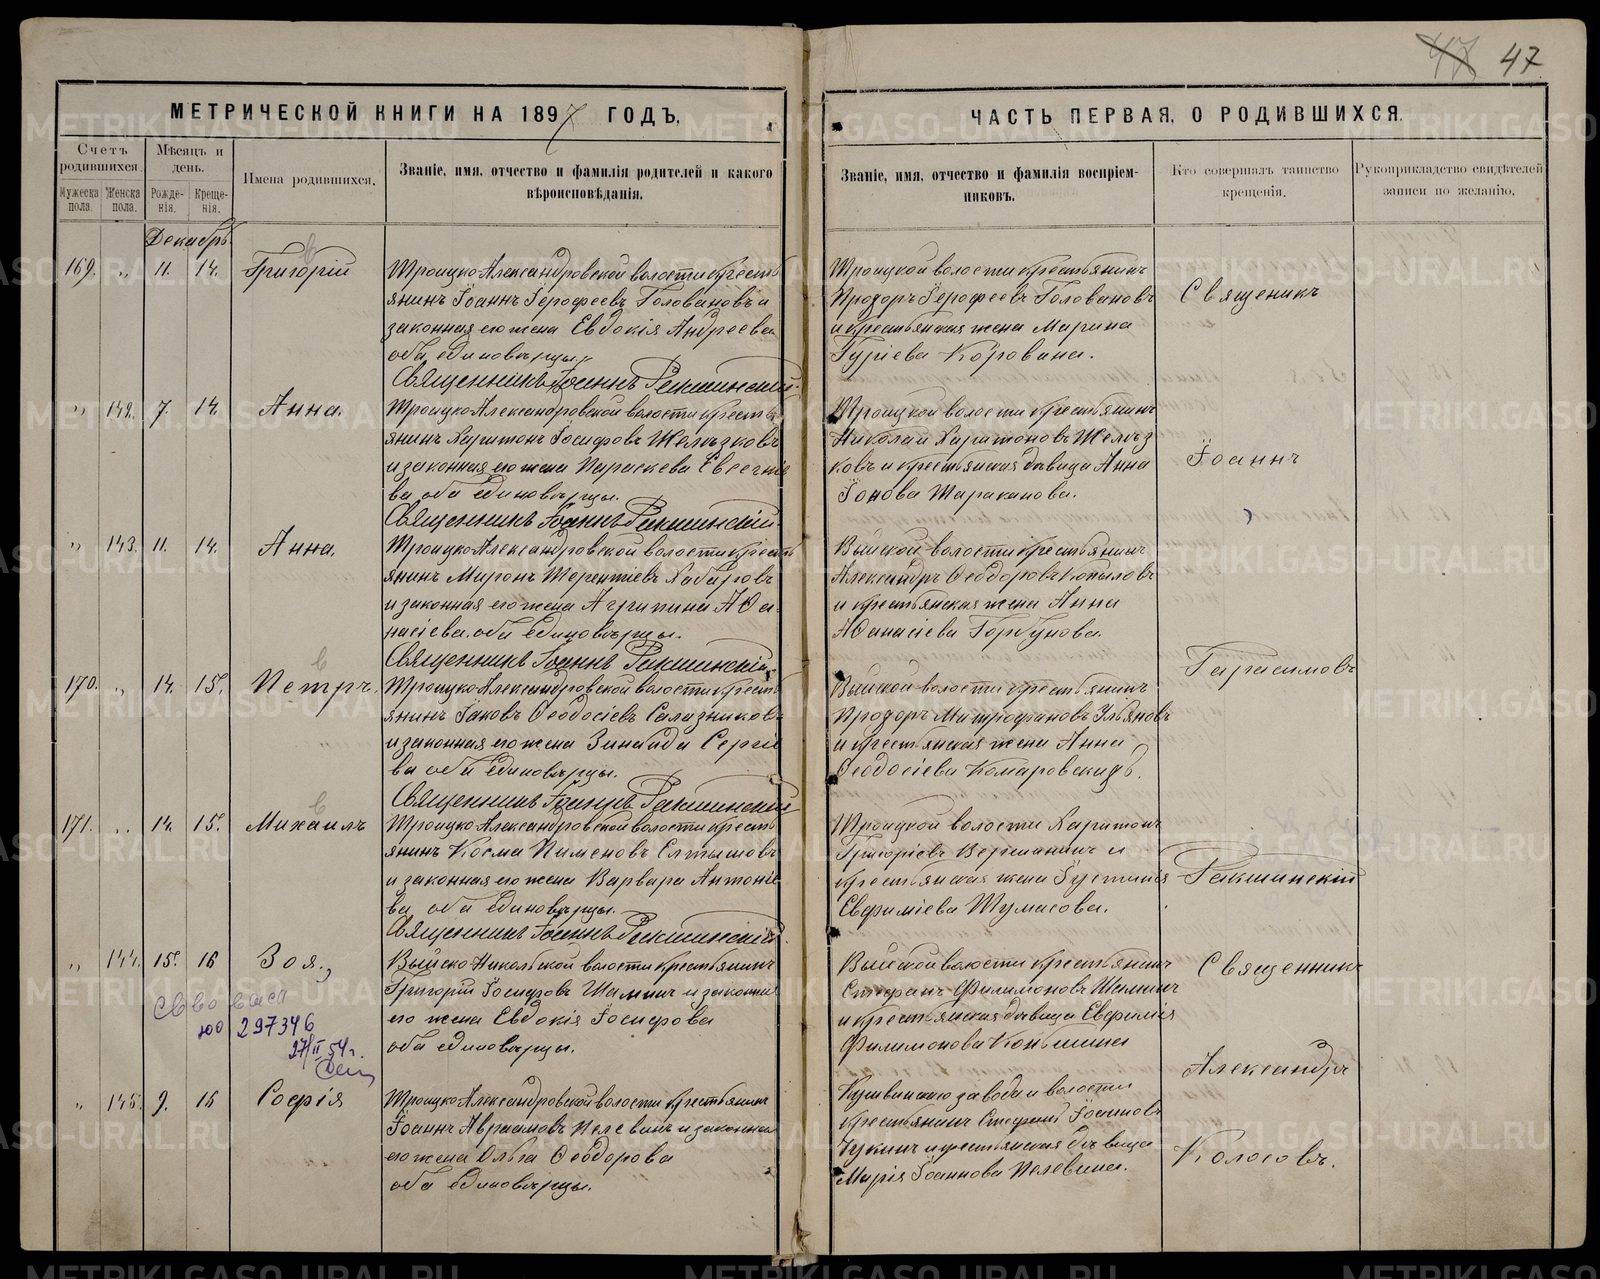 47 47
МЕТРИЧЕСКОЙ КНИГИ НА 1897 ГОДЪ,
ЧАСТЬ ПЕРВАЯ, О РОДИВШИХСЯ.
Счетъ родившихся.
Мѣсяцъ и день.
Имена родившихся.
Званіе, имя, отчество и фамилія родителей и какого
вѣроисповѣданія.
Званіе, имя, отчество и фамилія воспріем-
никовъ.
Кто совершалъ таинство
крещенія.
Рукоприкладство свидѣтелей
записи по желанію.
Мужеска пола.
Женска пола.
Рожде-
нія.
Креще-
нія.
Декабрь
169. „ 11. 14. Григорій
Троицко Александровской волости кресть
янинъ Іоаннъ Іерофеевъ Головановъ и
законная его жена Евдокія Андреева
оба единовѣрцы.
Священникъ Іоаннъ Ракшинскій.
Троицкой волости крестьянинъ
Прохоръ Іерофеевъ Головановъ
и крестьянская жена Марина
Гуріева Коровина.
„ 142. 7. 14. Анна.
Троицко Александровской волости кресть
янинъ Харитонъ Іосифовъ Желѣзковъ
и законная его жена Параскева Евсегніе
ва оба единовѣрцы.
Священникъ Іоаннъ Ракшинскій.
Троицкой волости крестьянинъ
Николай Харитоновъ Желѣз
ковъ и крестьянская дѣвица Анна
Іонова Тараканова.
„ 143. 11. 14. Анна.
Троицко Александровской волости кресть
янинъ Миронъ Терентіевъ Хабаровъ
и законная его жена Агрипина Аѳа
насіева. оба единовѣрцы.
Священникъ Іоаннъ Ракшинскій.
Выйской волости крестьянинъ
Александръ Ѳеодоровъ Копыловъ
и крестьянская жена Анна
Аѳанасіева Горбунова.
170. „ 14. 15. Петръ.
Троицко Александровской волости кресть
янинъ Іаковъ Ѳеодосіевъ Салазниковъ
и законная его жена Зинаида Сергіе
ва оба единовѣрцы.
Священникъ Іоаннъ Ракшинскій
Выйской волости крестьянинъ
Прохоръ Митрофановъ Ульяновъ
и крестьянская жена Анна
Ѳеодосіева Комаровскихъ.
171. „ 14. 15. Михаилъ
Троицко Александровской волости кресть
янинъ Косма Пименовъ Елтышовъ
и законная его жена Варвара Антоніе
ва, оба единовѣрцы.
Священникъ Іоаннъ Ракшинскій.
Троицкой волости Харитонъ
Григоріевъ Вершининъ и
крестьянская жена Іустинія
Евфиміева Шумасова.
„ 144. 15. 16 Зоя.
Выйско Никольской волости крестьянинъ
Григорій Іосифовъ Шаминъ и законная
его жена Евдокія Іосифова
оба единовѣрцы.
Выйской волости крестьянинъ
Стефанъ Филимоновъ Шаминъ
и крестьянская дѣвица Евфимія
Филимонова Коньшина
297346
27/II 54 г.
„ 145. 9. 16 Софія
Троицко Александровской волости крестьянинъ
Іоаннъ Авраамовъ Пелевинъ и законная
его жена Ольга Ѳеодорова
оба единовѣрцы.
Кушвинскаго завода и волости
крестьянинъ Стефанъ Іоанновъ
Чукинъ и крестьянская дѣвица
Марія Іоаннова Пелевина.
Священикъ
Іоаннъ
Гарасимовъ
Ракшинскій
Священникъ
Александръ
Колосовъ.
METRIKI.GASO-URAL.RU